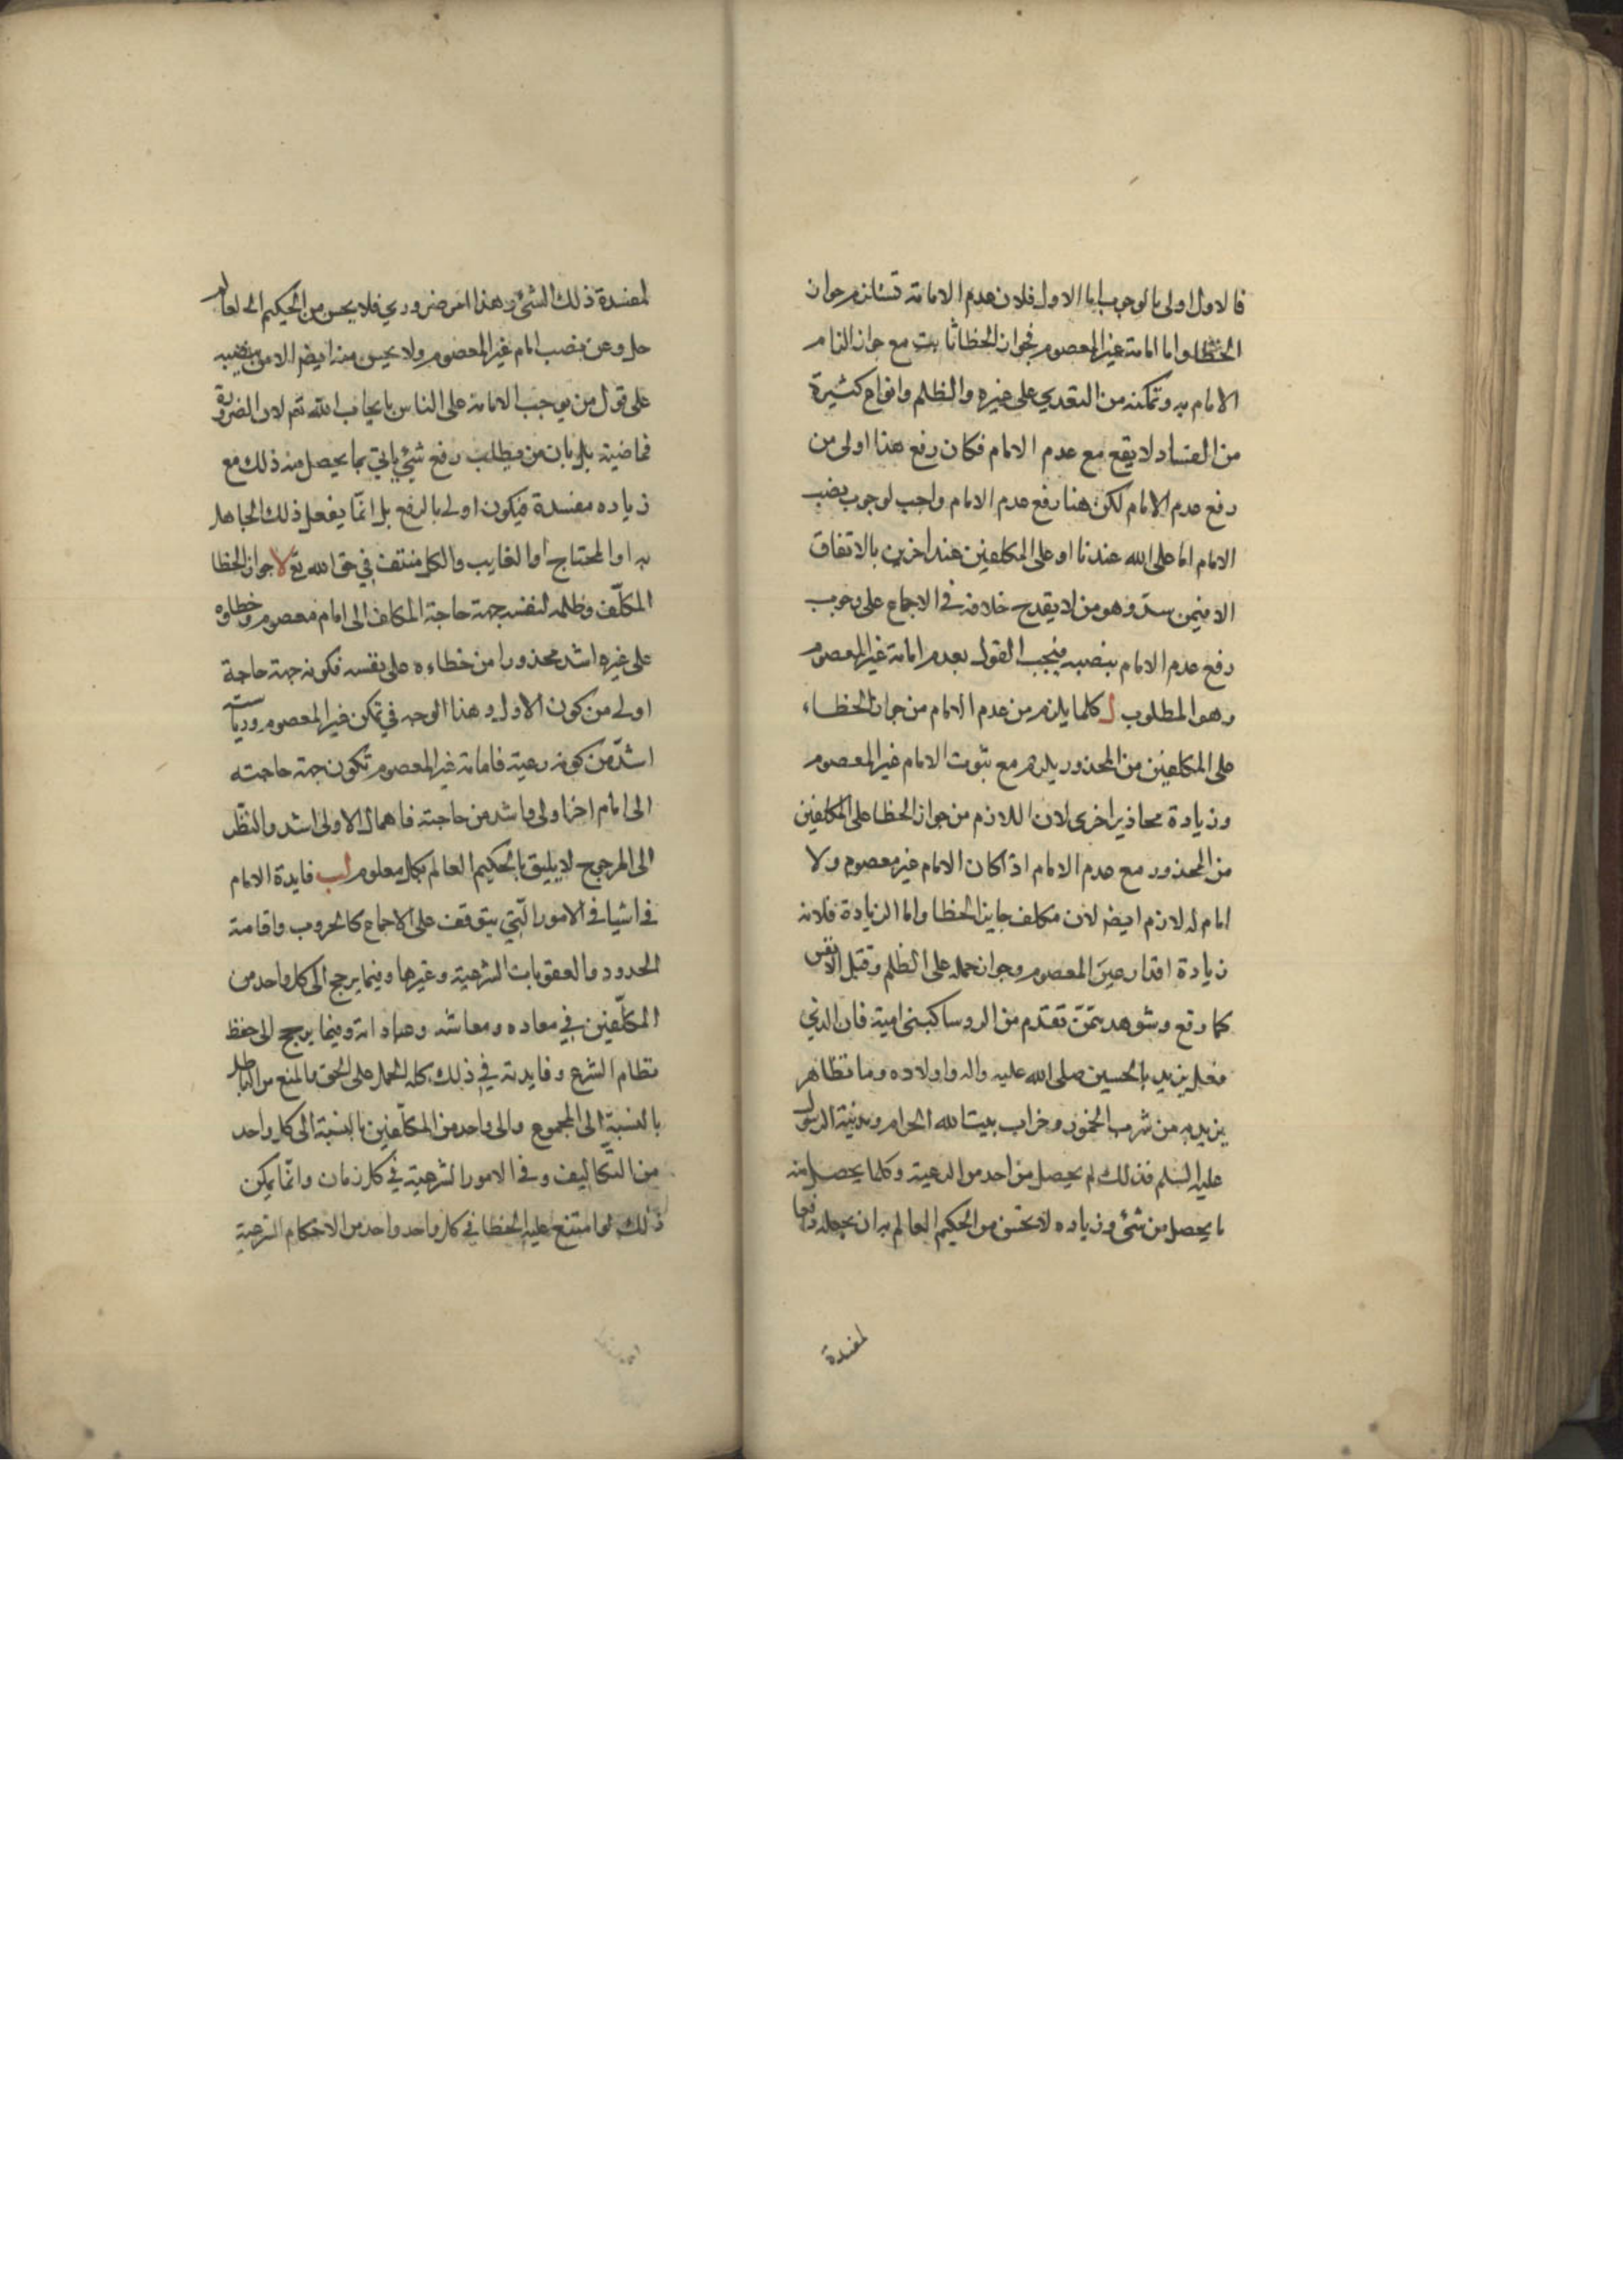 فالاول اولى بالوجوب اما الاول فلان عدم الامامة تستلزم جواز
الخطا واما امامة غير المعصوم فجواز الخطا ثابت مع جواز الزام
الامام به وتمكنه من التعدي على غيره والظلم وانواع كثيرة
من الفساد لا يقع مع عدم الامام فكان رفع هذا اولى من
رفع عدم الامام لكن هنا رفع عدم الامام واجب لوجوب نصب
الامام اما على الله عندنا او على المكلفين عند اخرين بالاتفاق
الا فيمن وهو من لا يقدح خلافه في الاجماع على وجوب
رفع عدم الامام بنصبه فيجب القول بعدم امامة غير المعصوم
وهو المطلوب ل كلما يلزم من عدم الامام من جواز الخطاء
على المكلفين من المحذور يلزم مع ثبوت الامام غير المعصوم
وزيادة محاذير اخرى لان اللازم من جواز الخطا على المكلفين
من المحذور مع عدم الامام اذا كان الامام غير معصوم ولا
امام له لازم ايضا لانه مكلف جايز الخطا واما الزيادة فلانه
زيادة اقدار غير المعصوم وجواز حمله على الظلم وقتل الانفس
كما وقع وشوهد ممن تقدم من الروسا كبنى امية فان الذي
فعل يزيد بالحسين صلى الله عليه واله واولاده وما تظاهر
يزيد به من شرب الخمور وخراب بيت الله الحرام ومدينة الرسول
عليه السلم فذلك لم يحصل من احد من الرعية وكلما يحصل منه
ما يحصل من شئ وزياده لا يحسن من الحكيم العالم به ان يجعله دافعا
لمفسدة
لمفسدة ذلك الشئ وهذا امر ضروري فلا يحسن من الحكيم العالم
جل وعز نصب امام غير المعصوم ولا يحسن منه ايضا الامر بنصبه
على قول من يوجب الامامة على الناس بايجاب الله تع لان الضرورة
قاضية بان من يطلب رفع شئ ياتي بما يحصل منه ذلك مع
زياده مفسدة فيكون اولى بالرفع بل انما يفعل ذلك الجاهل
به او المحتاج او الغايب والكل منتف في حق الله تع لا جواز الخطا
المكلف وظلمه لنفسه جهة حاجة المكلف الى امام معصوم وخطاوه
على غيره اشد محذورا من خطاءه على نفسه فكونه جهة حاجة
اولى من كون الاول وهذا الوجه في تمكن غير المعصوم ورياسته
اشد من كونه رعية فامامة غير المعصوم تكون جهة حاجته
الى امام اخر اولى واشد من حاجته فاهمال الاولى اشد والنظر
الى المرجوح لا يليق بالحكيم العالم بكل معلوم لب فايدة الامام
في اشيا في الامور التي يتوقف على الاجماع كالحروب واقامة
الحدود والعقوبات الشرعية وغيرها وفيما يرجع الى كل واحد من
المكلفين في معاده ومعاشه وعباداته وفيما يرجع الى حفظ
نظام الشرع وفايدته في ذلك كله الحمل على الحق والمنع من الباطل
بالنسبة الى المجموع والى واحد من المكلفين بالنسبة الى كل واحد
من التكاليف وفي الامور الشرعية في كل زمان وانما يمكن
ذلك لو امتنع عليه الخطا في كل واحد واحد من الاحكام الشرعية